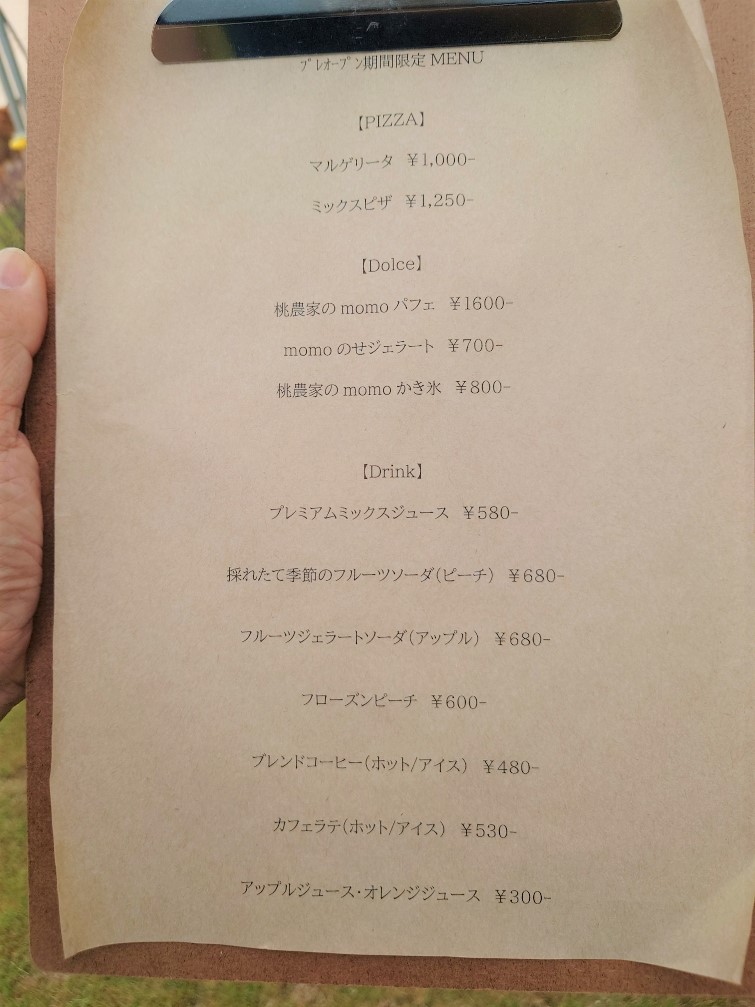 ﾌﾟﾚｵｰﾌﾟﾝ期間限定 MENU
【PIZZA】
マルゲリータ ￥1,000-
ミックスピザ ￥1,250-
【Dolce】
桃農家の momo パフェ ￥1600-
momo のせジェラート ￥700-
桃農家の momo かき氷 ￥800-
【Drink】
プレミアムミックスジュース ￥580-
採れたて季節のフルーツソーダ（ピーチ） ￥680-
フルーツジェラートソーダ（アップル） ￥680-
フローズンピーチ ￥600-
ブレンドコーヒー（ホット/アイス） ￥480-
カフェラテ（ホット/アイス） ￥530-
アップルジュース・オレンジジュース ￥300-